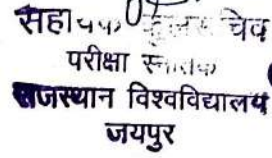 सहायक कुलसचिव
परीक्षा स्नातक
राजस्थान विश्वविद्यालय
जयपुर